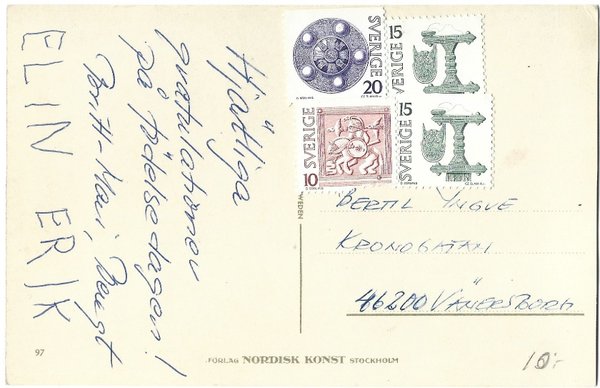 Hjärtliga
gratulationer
på födelsedagen!
Britt-Mari, Bengt
ELIN ERIK
SVERIGE 20
SVERIGE 15
SVERIGE 10
SVERIGE 15
BERTIL YNGVE
KRONOGATAN
46200 VÄNERSBORG
WEDEN
97
FÖRLAG NORDISK KONST STOCKHOLM
10:-